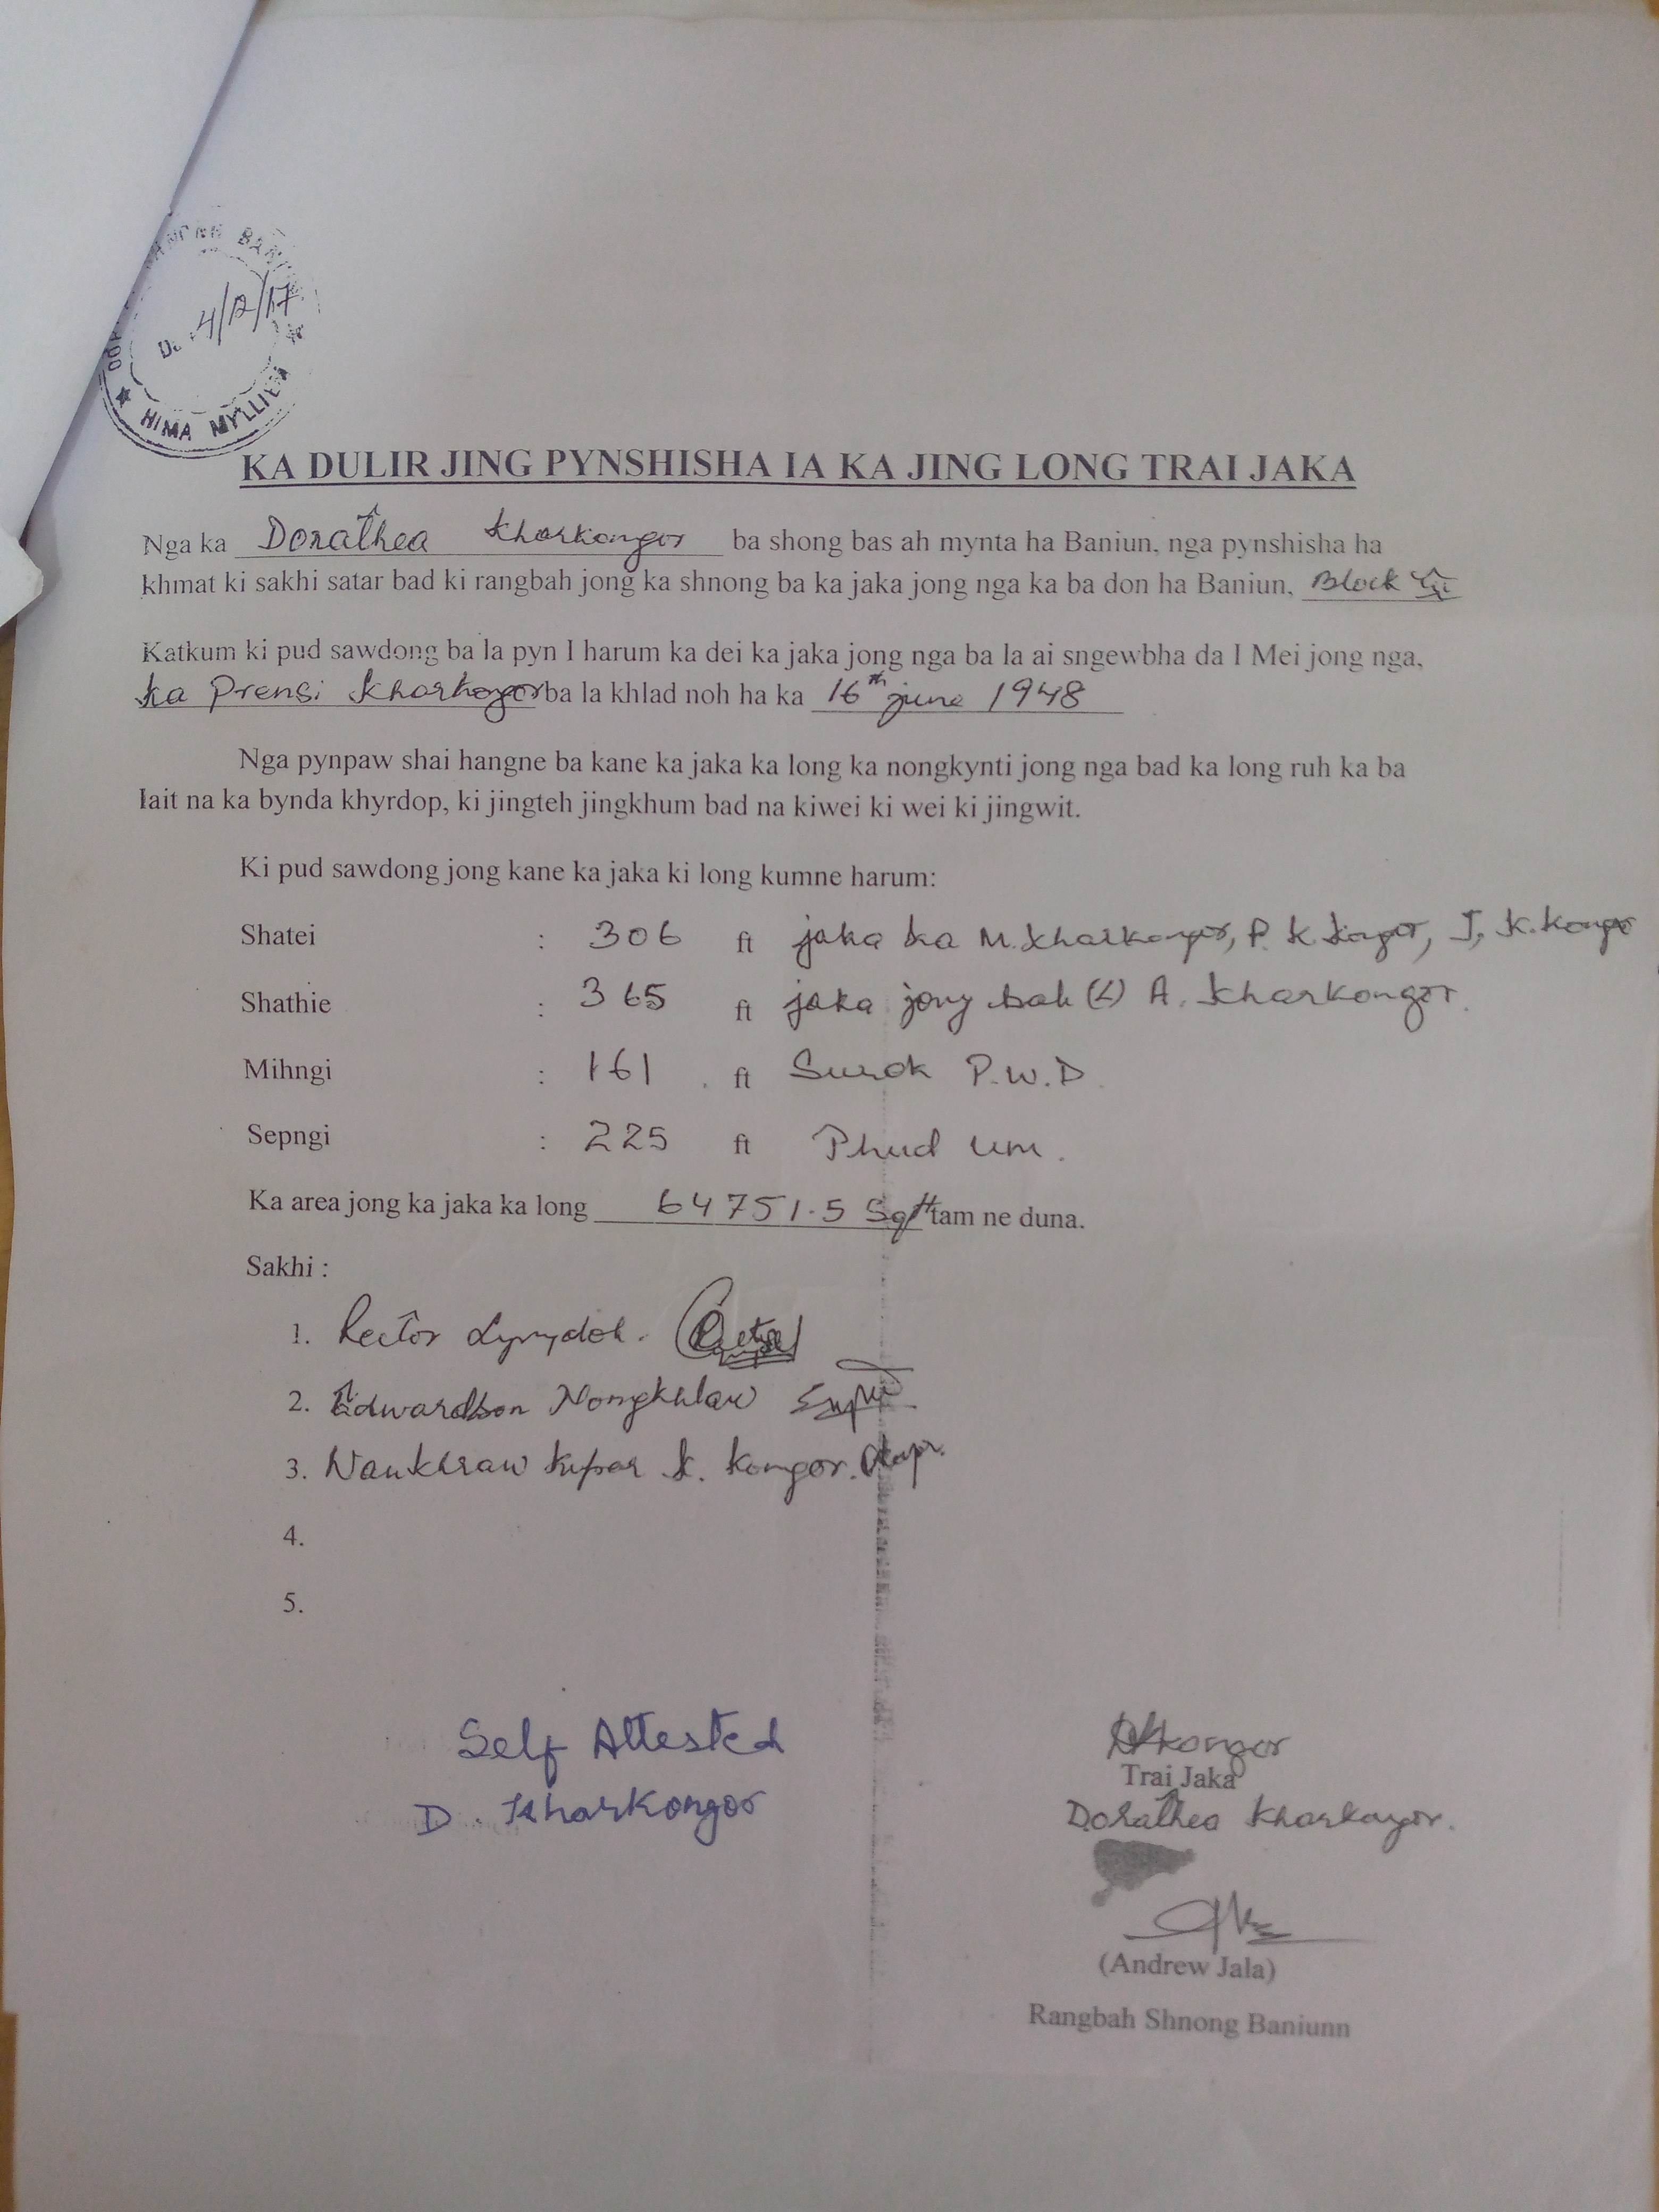 4/12/17
HIMA MYLLIEM
KA DULIR JING PYNSHISHA IA KA JING LONG TRAI JAKA
Nga ka Dorathea Kharkongor ba shong bas ah mynta ha Baniun, nga pynshisha ha
khmat ki sakhi satar bad ki rangbah jong ka shnong ba ka jaka jong nga ka ba don ha Baniun, Block
Katkum ki pud sawdong ba la pyn I harum ka dei ka jaka jong nga ba la ai sngewbha da I Mei jong nga,
ka Prensi Kharkongor ba la khlad noh ha ka 16th june 1948
Nga pynpaw shai hangne ba kane ka jaka ka long ka nongkynti jong nga bad ka long ruh ka ba
lait na ka bynda khyrdop, ki jingteh jingkhum bad na kiwei ki wei ki jingwit.
Ki pud sawdong jong kane ka jaka ki long kumne harum:
Shatei : 306 ft jaka ka M. Kharkongor, P. K. Kongor, J. K. Kongor
Shathie : 365 ft jaka jong bah (L) A. Kharkongor.
Mihngi : 161 ft Surok P.W.D
Sepngi : 225 ft Phud um.
Ka area jong ka jaka ka long 64751.5 Sqft tam ne duna.
Sakhi :
1. Rector Lyngdoh.
2. Edwardson Nongkhlaw
3. Nankhraw Kupar K. Kongor.
4.
5.
Self Attested
D. Kharkongor
DKkongor
Trai Jaka
Dorathea Kharkongor.
(Andrew Jala)
Rangbah Shnong Baniunn